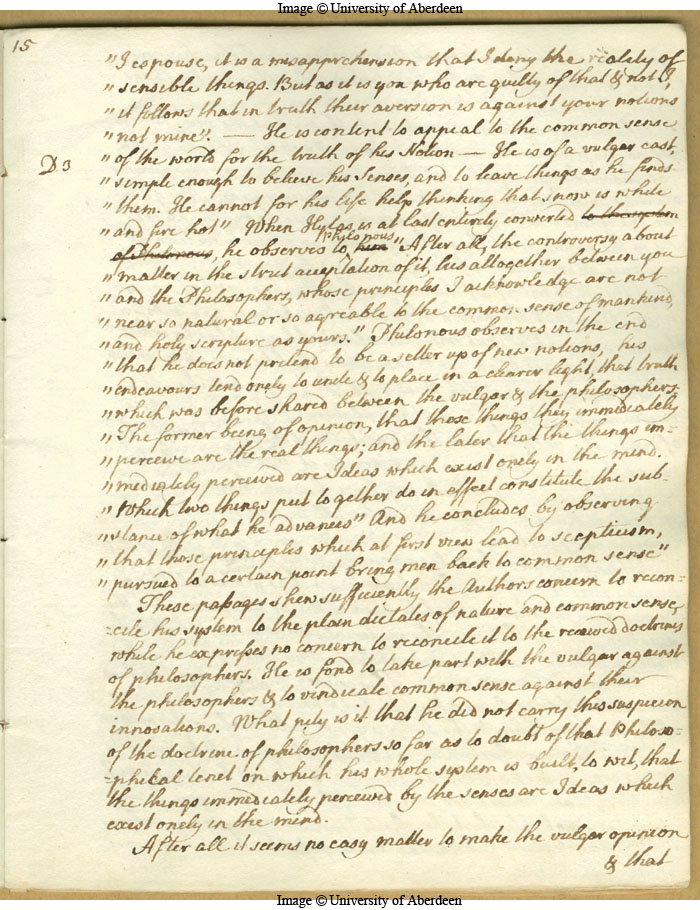 Image © University of Aberdeen
15
"I espouse, it is a misapprehension that I deny the reality of
"sensible things. But as it is you who are guilty of that & not I,
"it follows that in truth their aversion is against your notions
"not mine". — He is content to appeal to the common sense
D3
"of the world for the truth of his Notion — He is of a vulgar cast,
"simple enough to believe his Senses, and to leave things as he finds
"them. He cannot for his life help thinking that snow is white
"and fire hot" When Hylas is at last entirely converted to the system
Philonous
of Philonous, he observes to him "After all, the controversy about
"matter in the strict acceptation of it, lies altogether between you
"and the Philosophers, whose principles I acknowledge are not
"near so natural or so agreable to the common sense of mankind,
"and holy scripture as yours." Philonous observes in the end
"that he does not pretend to be a setter up of new notions, his
"endeavours tend onely to unite & to place in a clearer light that truth
"which was before shared between the vulgar & the philosophers.
"The former being of opinion, that those things they immediately
"perceive are the real things; and the later that the things im=
"mediately perceived are Ideas which exist onely in the mind.
"Which two things put together do in effect constitute the sub-
"stance of what he advances" And he concludes by observing
"that those principles which at first view lead to scepticism,
"pursued to a certain point bring men back to common sense"
These passages shew sufficiently the Authors concern to recon=
=cile his system to the plain dictates of nature and common sense,
while he expresses no concern to reconcile it to the received doctrines
of philosophers. He is fond to take part with the vulgar against
the philosophers & to vindicate common sense against their
innovations. What pity is it that he did not carry this suspicion
of the doctrine of philosophers so far as to doubt of that Philoso=
=phical tenet on which his whole system is built, to wit, that
the things immediately perceived by the senses are Ideas which
exist onely in the mind.
After all it seems no easy matter to make the vulgar opinion
& that
Image © University of Aberdeen